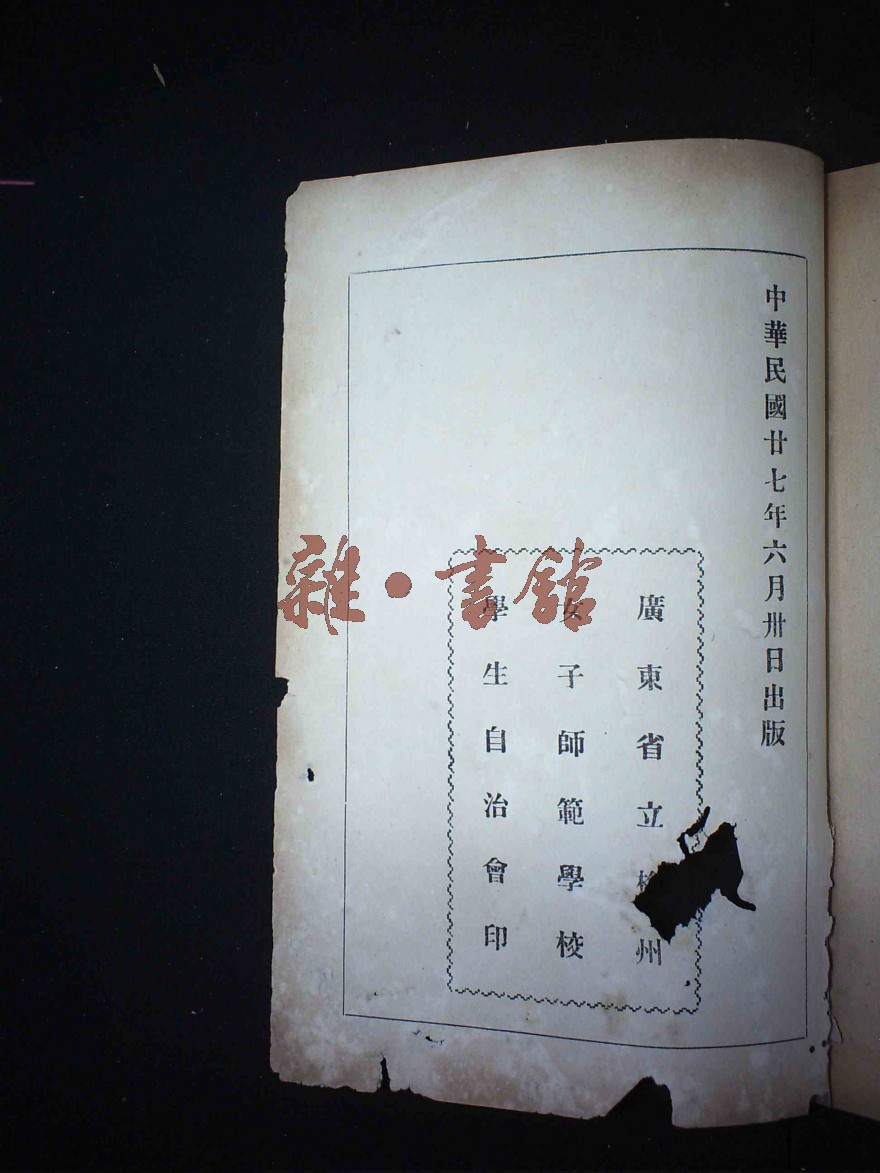 中華民國廿七年六月卅日出版
廣東省立 州
女子師範學校
學生自治會印
雜·書館